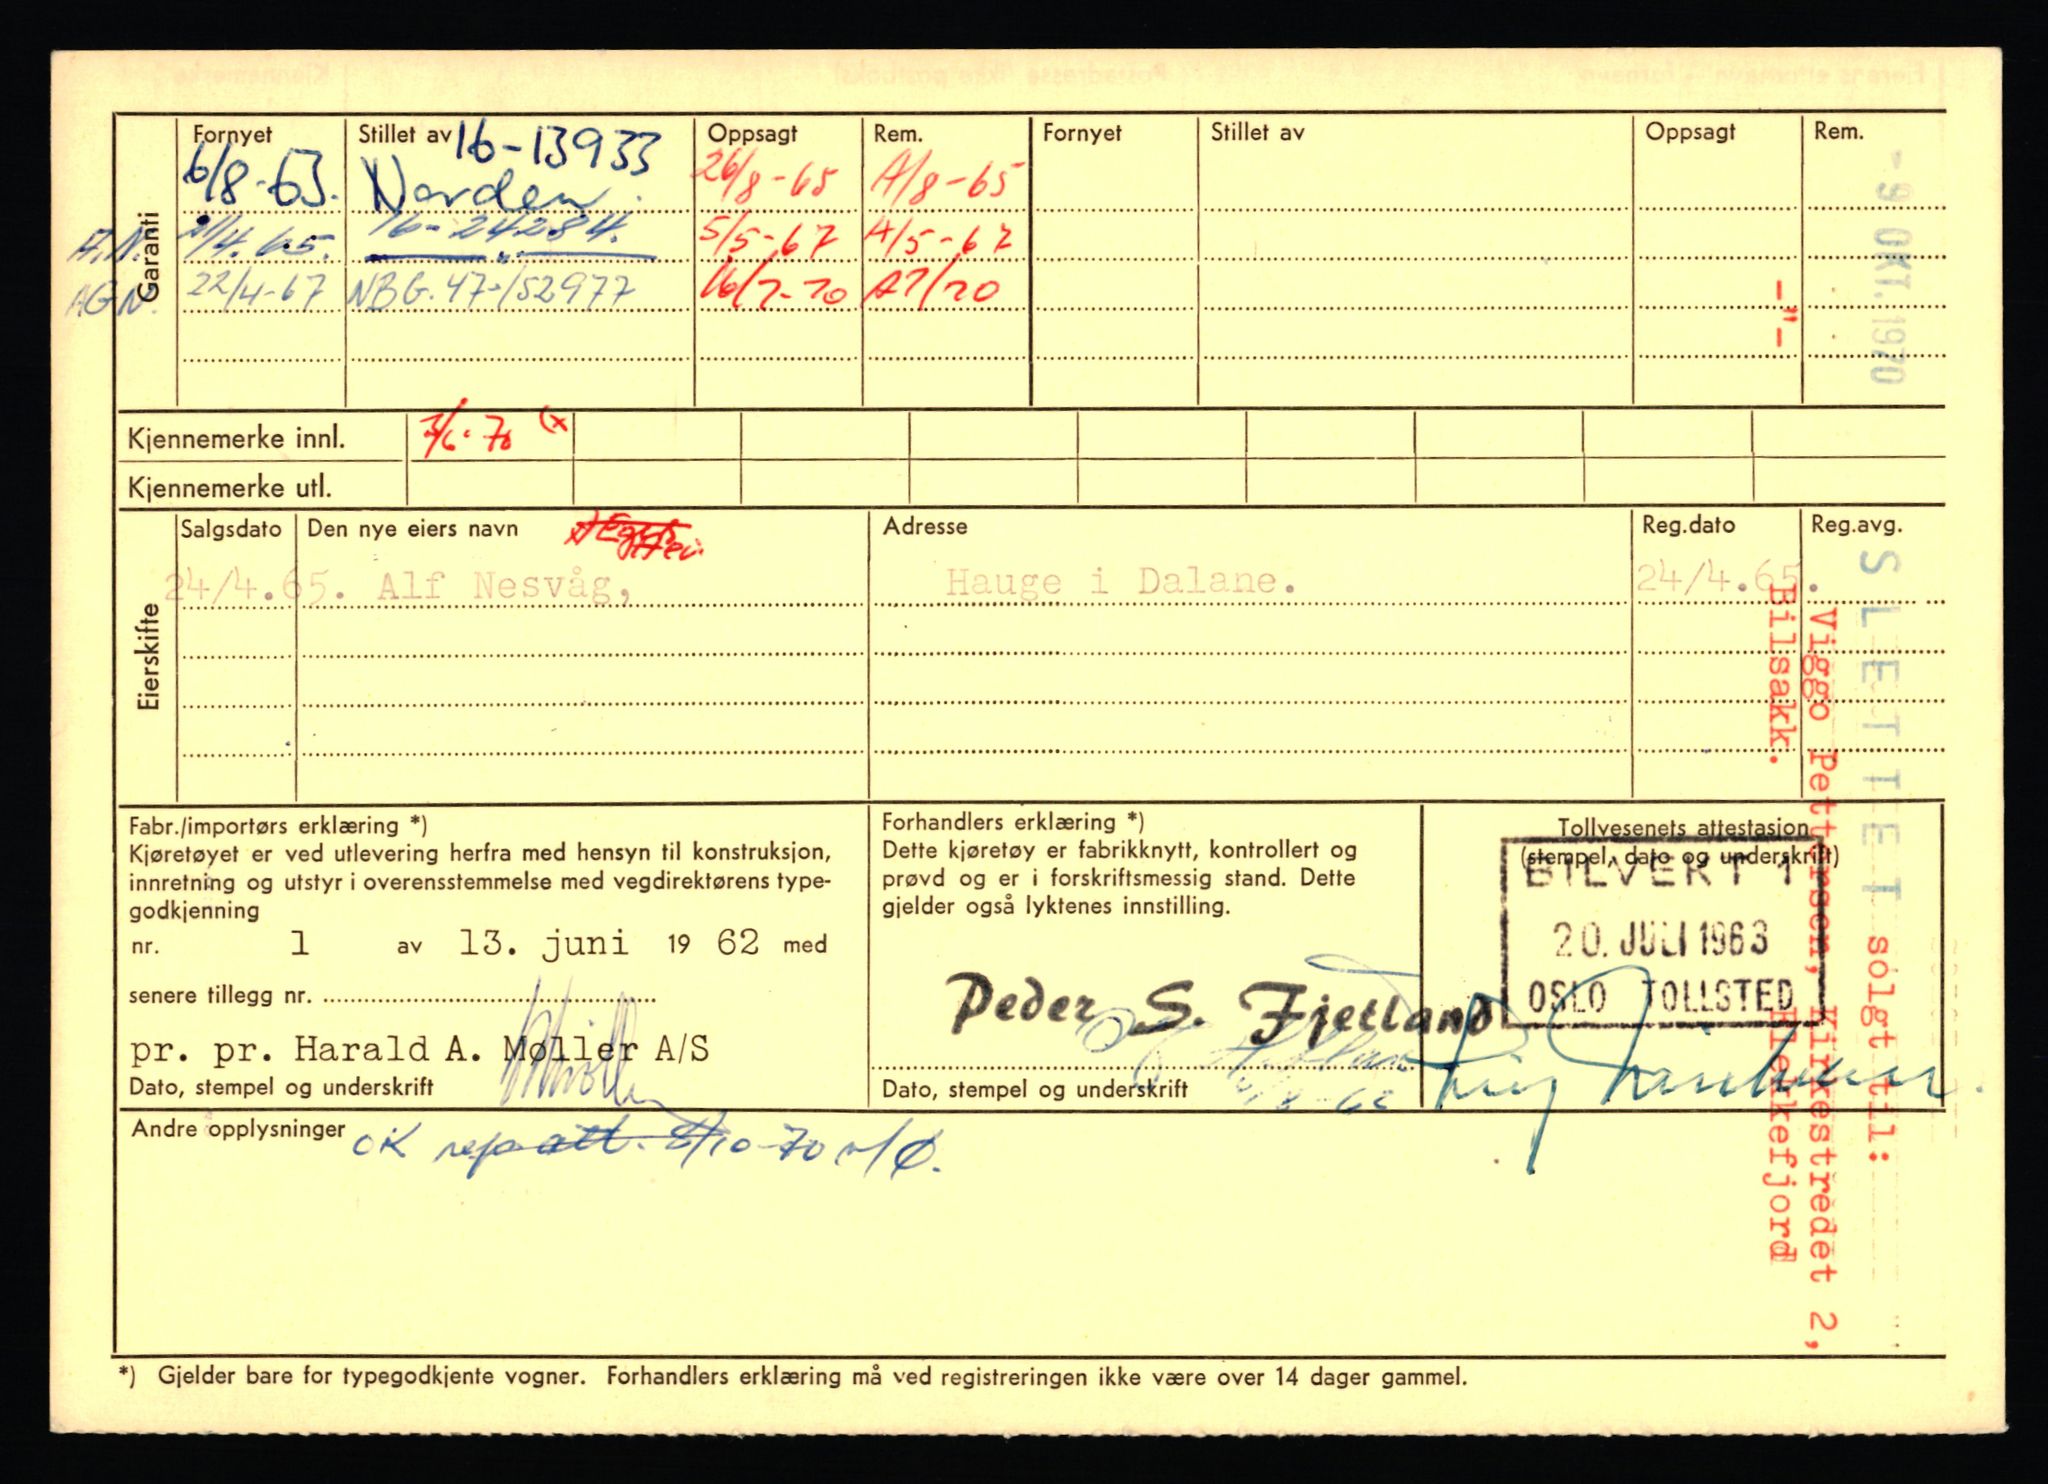 Fornyet Stillet av 16-13933 Oppsagt Rem. Fornyet Stillet av Oppsagt Rem.
6/8-63. Norden. 26/8-65 A/8-65
A.N. /4.65. 16-24284. 5/5-67 A/5-67
AGN. 22/4-67 NBG.47-152977 16/7-70 A7/70
Garanti
-"-
-9 OKT. 1970
Kjennemerke innl. 3/6-70 (x
Kjennemerke utl.
Salgsdato Den nye eiers navn Adresse Reg.dato Reg.avg.
24/4.65. Alf Nesvåg, Hauge i Dalane. 24/4.65.
Eierskifte
SLETTET solgt til:
Viggo Pettersen, Kirkestredet 2,
Bilsakk. Flekkefjord
Fabr./importørs erklæring *)
Kjøretøyet er ved utlevering herfra med hensyn til konstruksjon,
innretning og utstyr i overensstemmelse med vegdirektørens type-
godkjenning
nr. 1 av 13. juni 19 62 med
senere tillegg nr.
pr. pr. Harald A. Møller A/S
Dato, stempel og underskrift
Forhandlers erklæring *)
Dette kjøretøy er fabrikknytt, kontrollert og
prøvd og er i forskriftsmessig stand. Dette
gjelder også lyktenes innstilling.
Peder S. Fjetland
Dato, stempel og underskrift
Tollvesenets attestasjon
(stempel, dato og underskrift)
BILVERT 1
20. JULI 1963
OSLO TOLLSTED
Andre opplysninger OK rep att. 8/10-70 
*) Gjelder bare for typegodkjente vogner. Forhandlers erklæring må ved registreringen ikke være over 14 dager gammel.